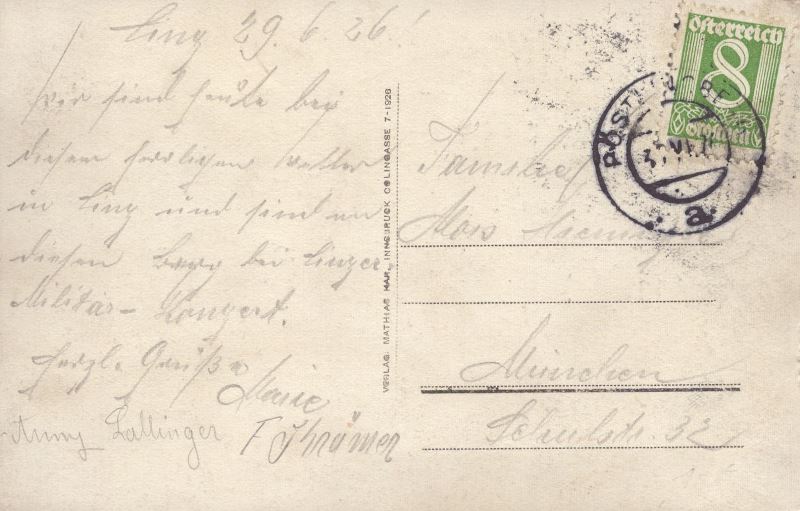 Linz 29. 6. 26!
Wir sind heute bei
diesem herrlichen Wetter
in Linz und sind
diesen bei Linzer
Militär-Konzert.
Herzl. Grüße
Marie
Anny Lallinger
F Schramer
VERLAG: MATHIAS HAR, INNSBRUCK COLINGASSE 7-1926
Österreich
8
Groschen
PÖSTLINGBERG
a
Familie
Alois
München
Schulstr 32